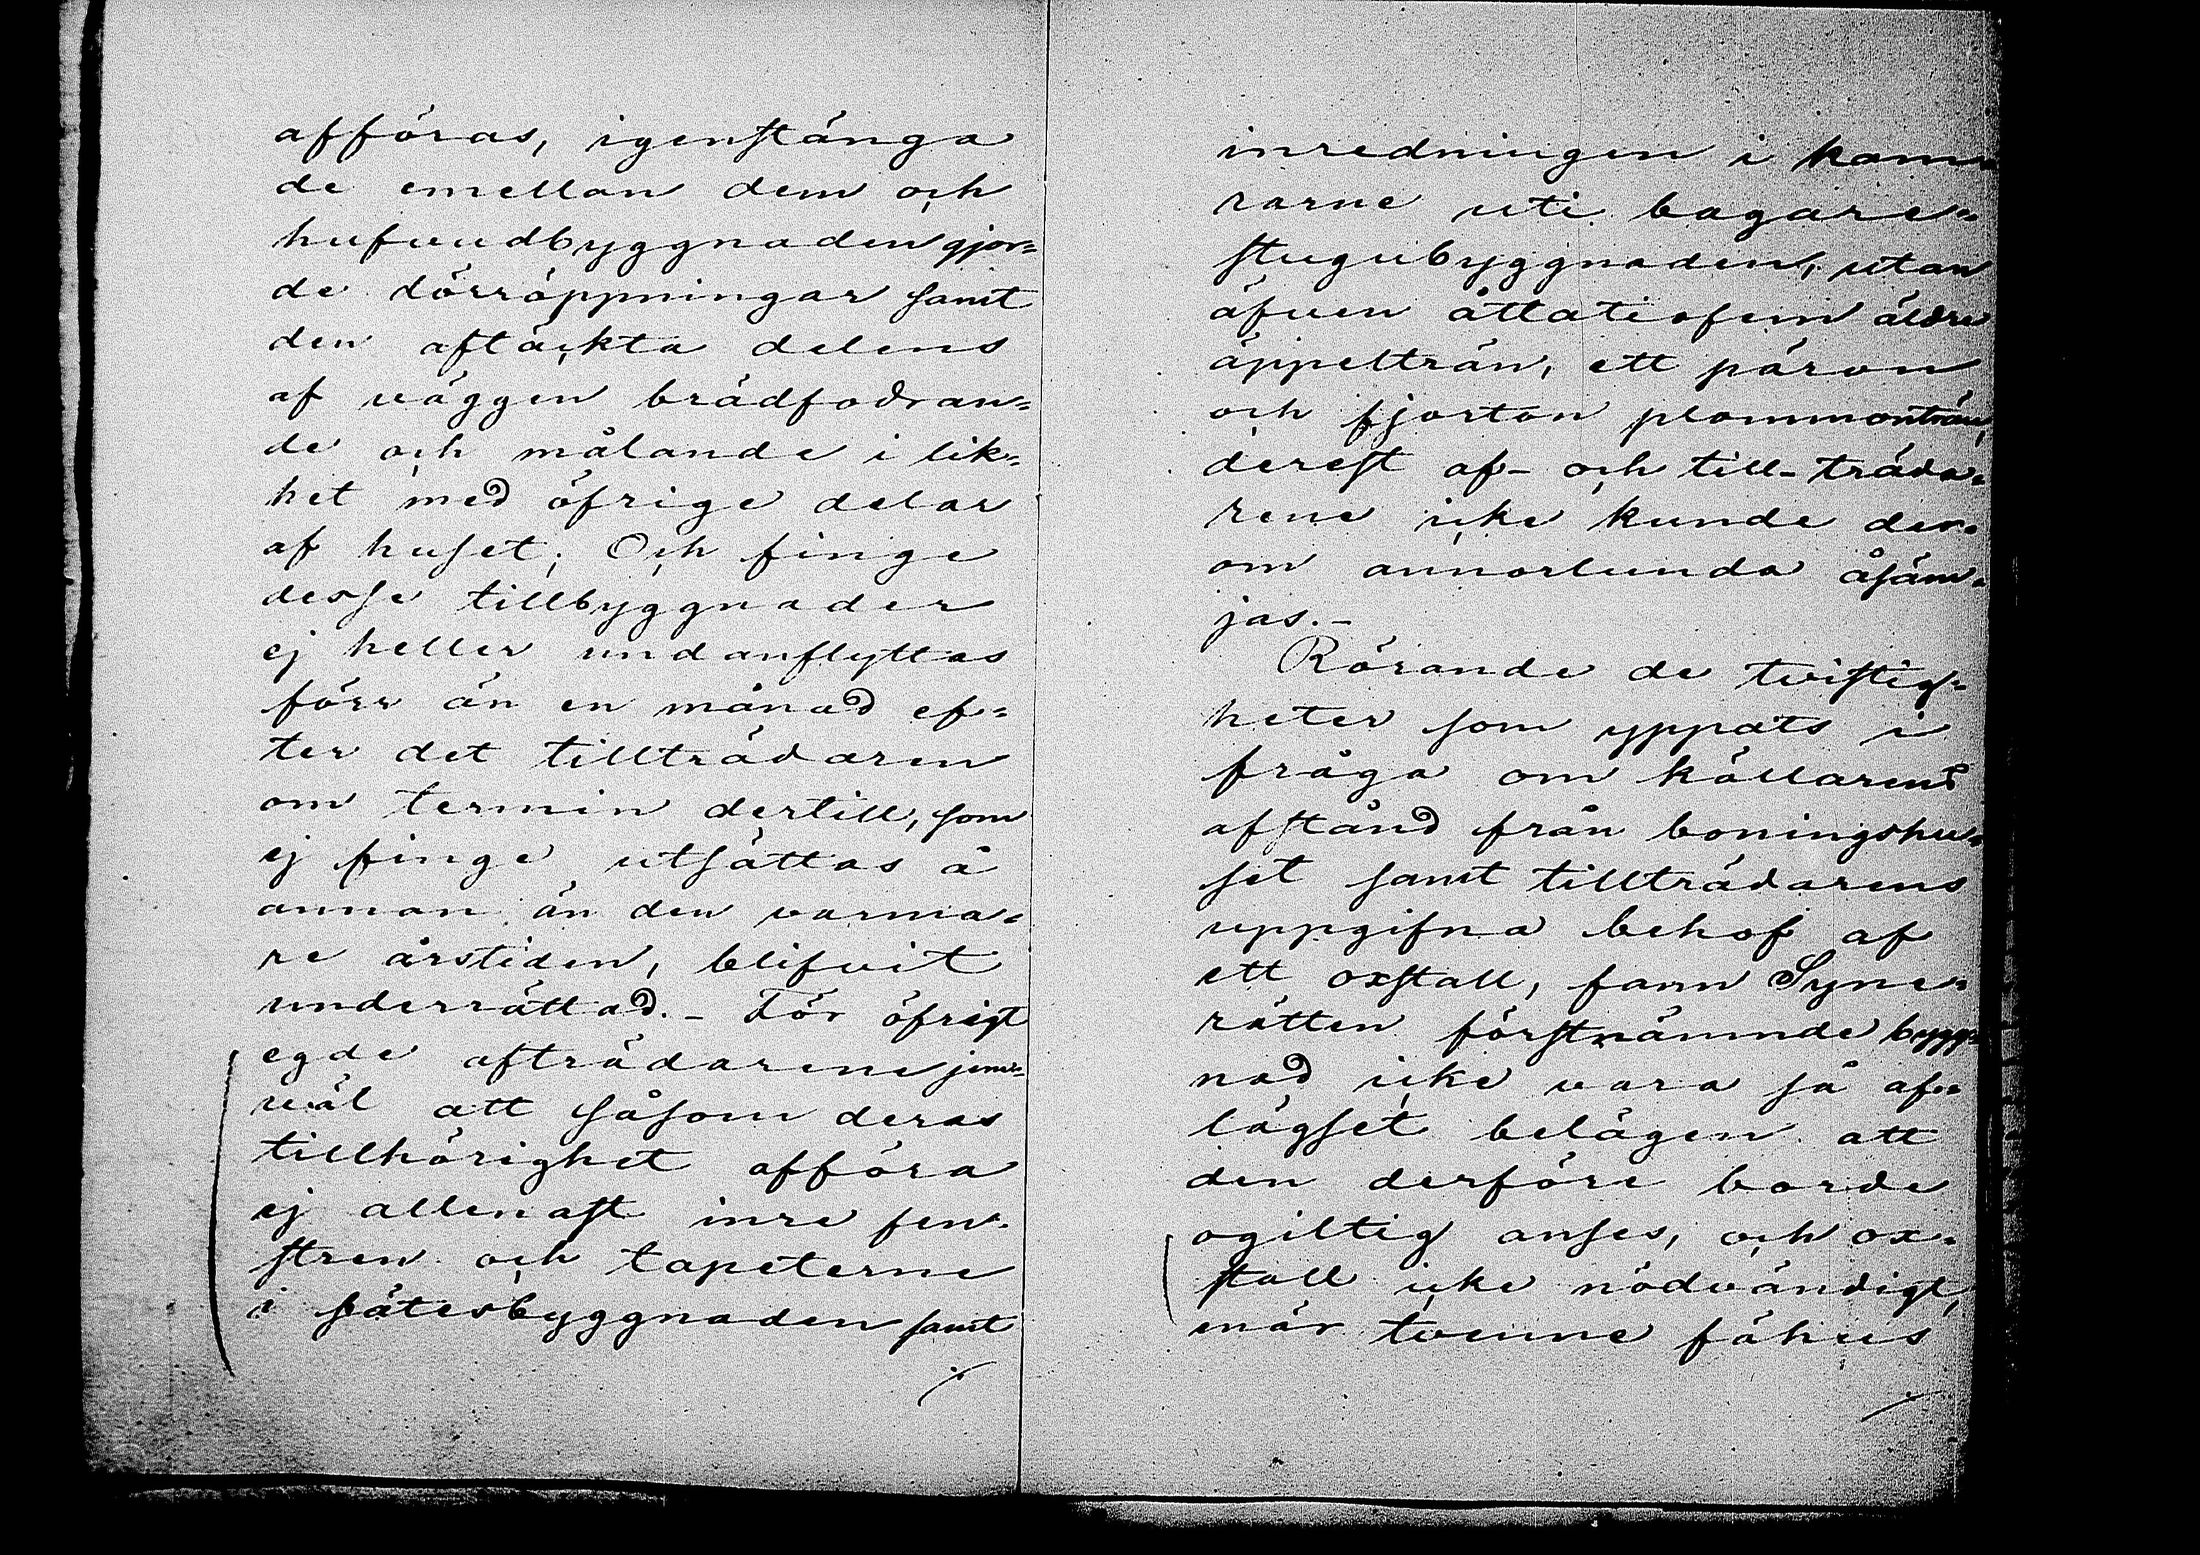 afföras, igenstänga
de emellan dem och
hufvudbyggnaden gjor=
de dörröppningar samt
den aftäckta delens
af väggen brädfodran=
de och målande i lik=
het med öfrige delar
af huset; Och finge
desse tillbyggnader
ej heller undanflyttas
förr än en månad ef=
ter det tillträdaren
om termin dertill, som
ej finge utsättas å
annan än den varma=
re årstiden, blifvit
underrättad. – För öfrigt
egde afträdarene jem=
väl att såsom deras
tillhörighet afföra
ej allenast inre fen=
stren och tapeterne
i sätesbyggnaden samt
inredningen i kam
rarne uti bagare=
stugubyggnaden, utan
äfven åttatiofem äldre
äppelträn, ett päron
och fjorton plommonträn,
derest af- och till-träda=
rene icke kunde der=
om annorlunda åsäm=
jas. –
Rörande de tvistig=
heter som yppats i
fråga om källarens
afstånd från boningshu=
set samt tillträdarens
uppgifna behof af
ett oxstall, fann Syne=
rätten förstnämnde bygg=
nad icke vara så af=
lägset belägen att
den derföre borde
ogiltig anses, och ox=
stall icke nödvändigt,
enär tvenne fähus